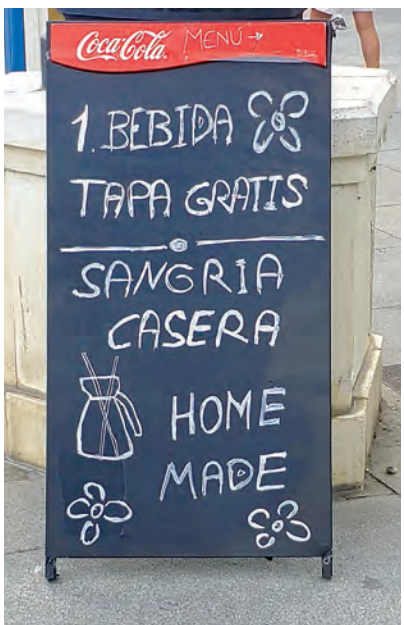 Coca-Cola MENÚ
1. BEBIDA
TAPA GRATIS
SANGRIA
CASERA
HOME
MADE